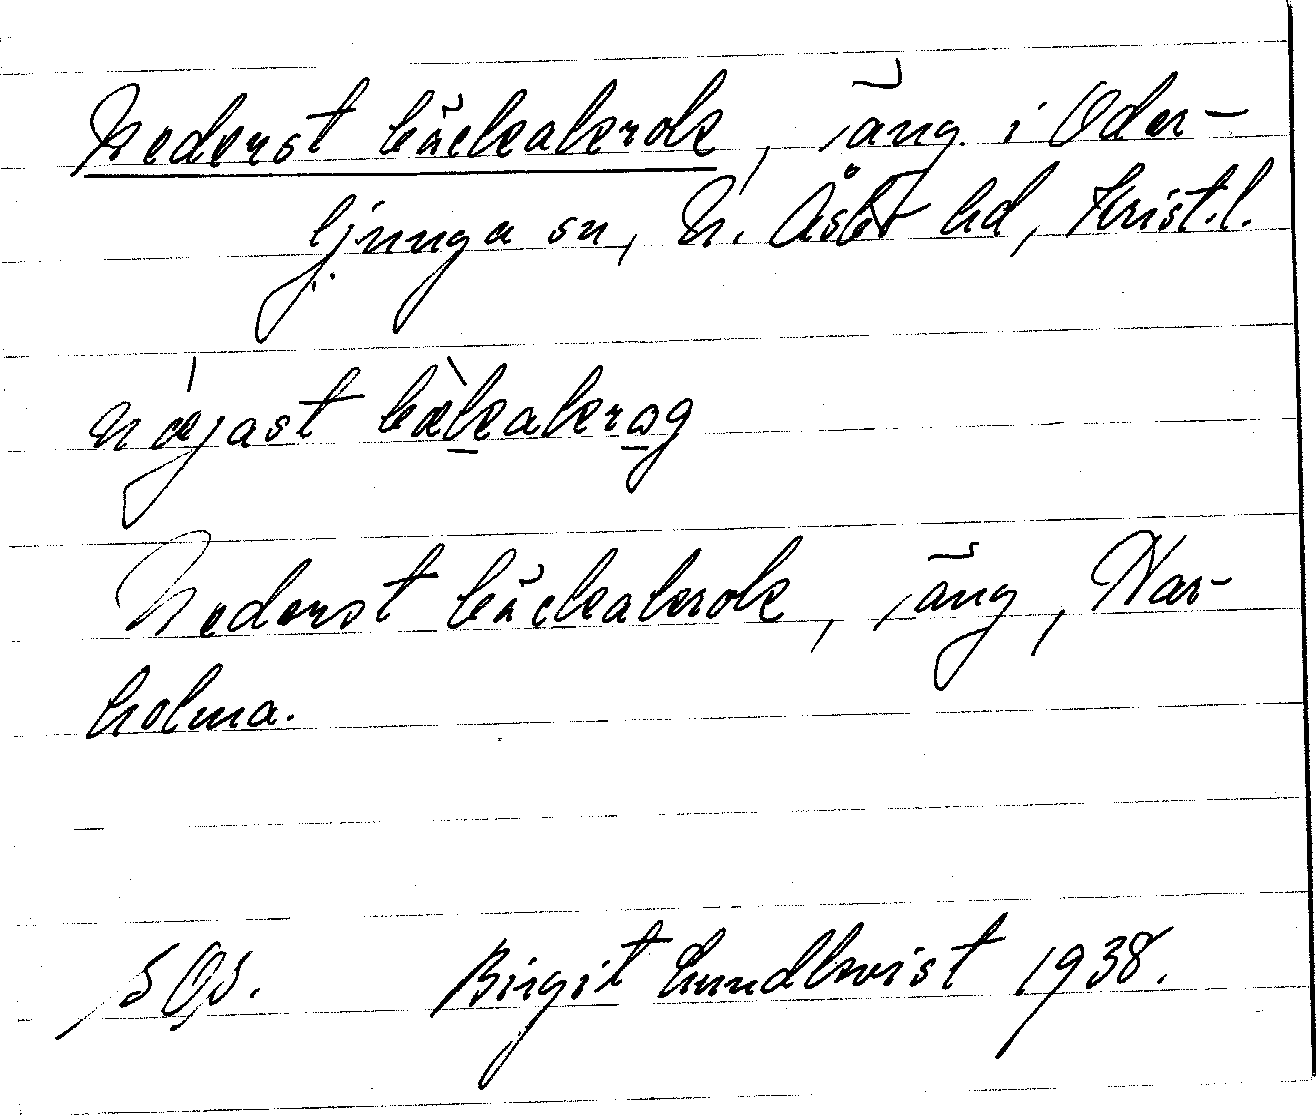 Nederst bäckakrok, äng i Oder-
ljunga sn, N. Åsbo hd, Krist.l.
næjast bækakrog
Nederst bäckakrok, äng, Var-
holma.
SOS. Birgit Lundkvist 1938.